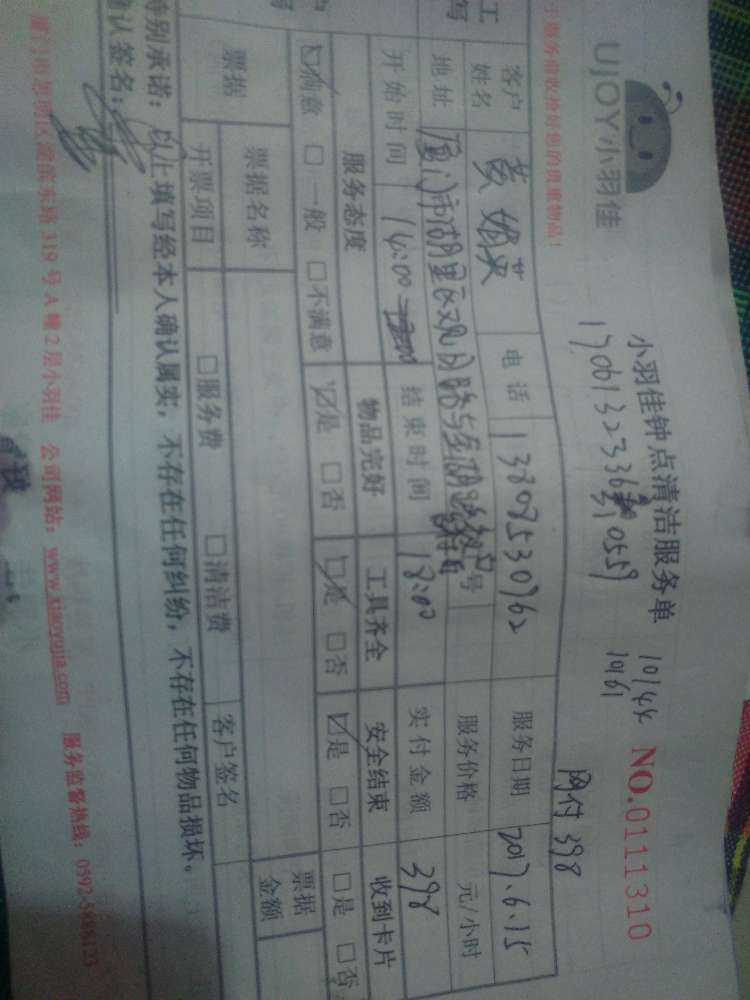 UJOY小羽佳
小羽佳钟点清洁服务单
NO.0111310
10144
10161
网付 398
贵重物品!
客户
姓名
电话
13808530962
服务日期
2017.6.15
地址
号
服务价格
元/小时
开始时间
14:00
结束时间
18:00
实付金额
398
服务态度
物品完好
工具齐全
安全结束
收到卡片
☑满意 □一般 □不满意
☑是 □否
☑是 □否
☑是 □否
□是 □否
票据
票据名称
票据
金额
开票项目
□服务费
□清洁费
客户签名
特别承诺：以上填写经本人确认属实，不存在任何纠纷，不存在任何物品损坏。
确认签名：
厦门市思明区湖滨东路 319 号 A 幢 2 层小羽佳 公司网站：www.xiaoyujia.com 服务监督热线：